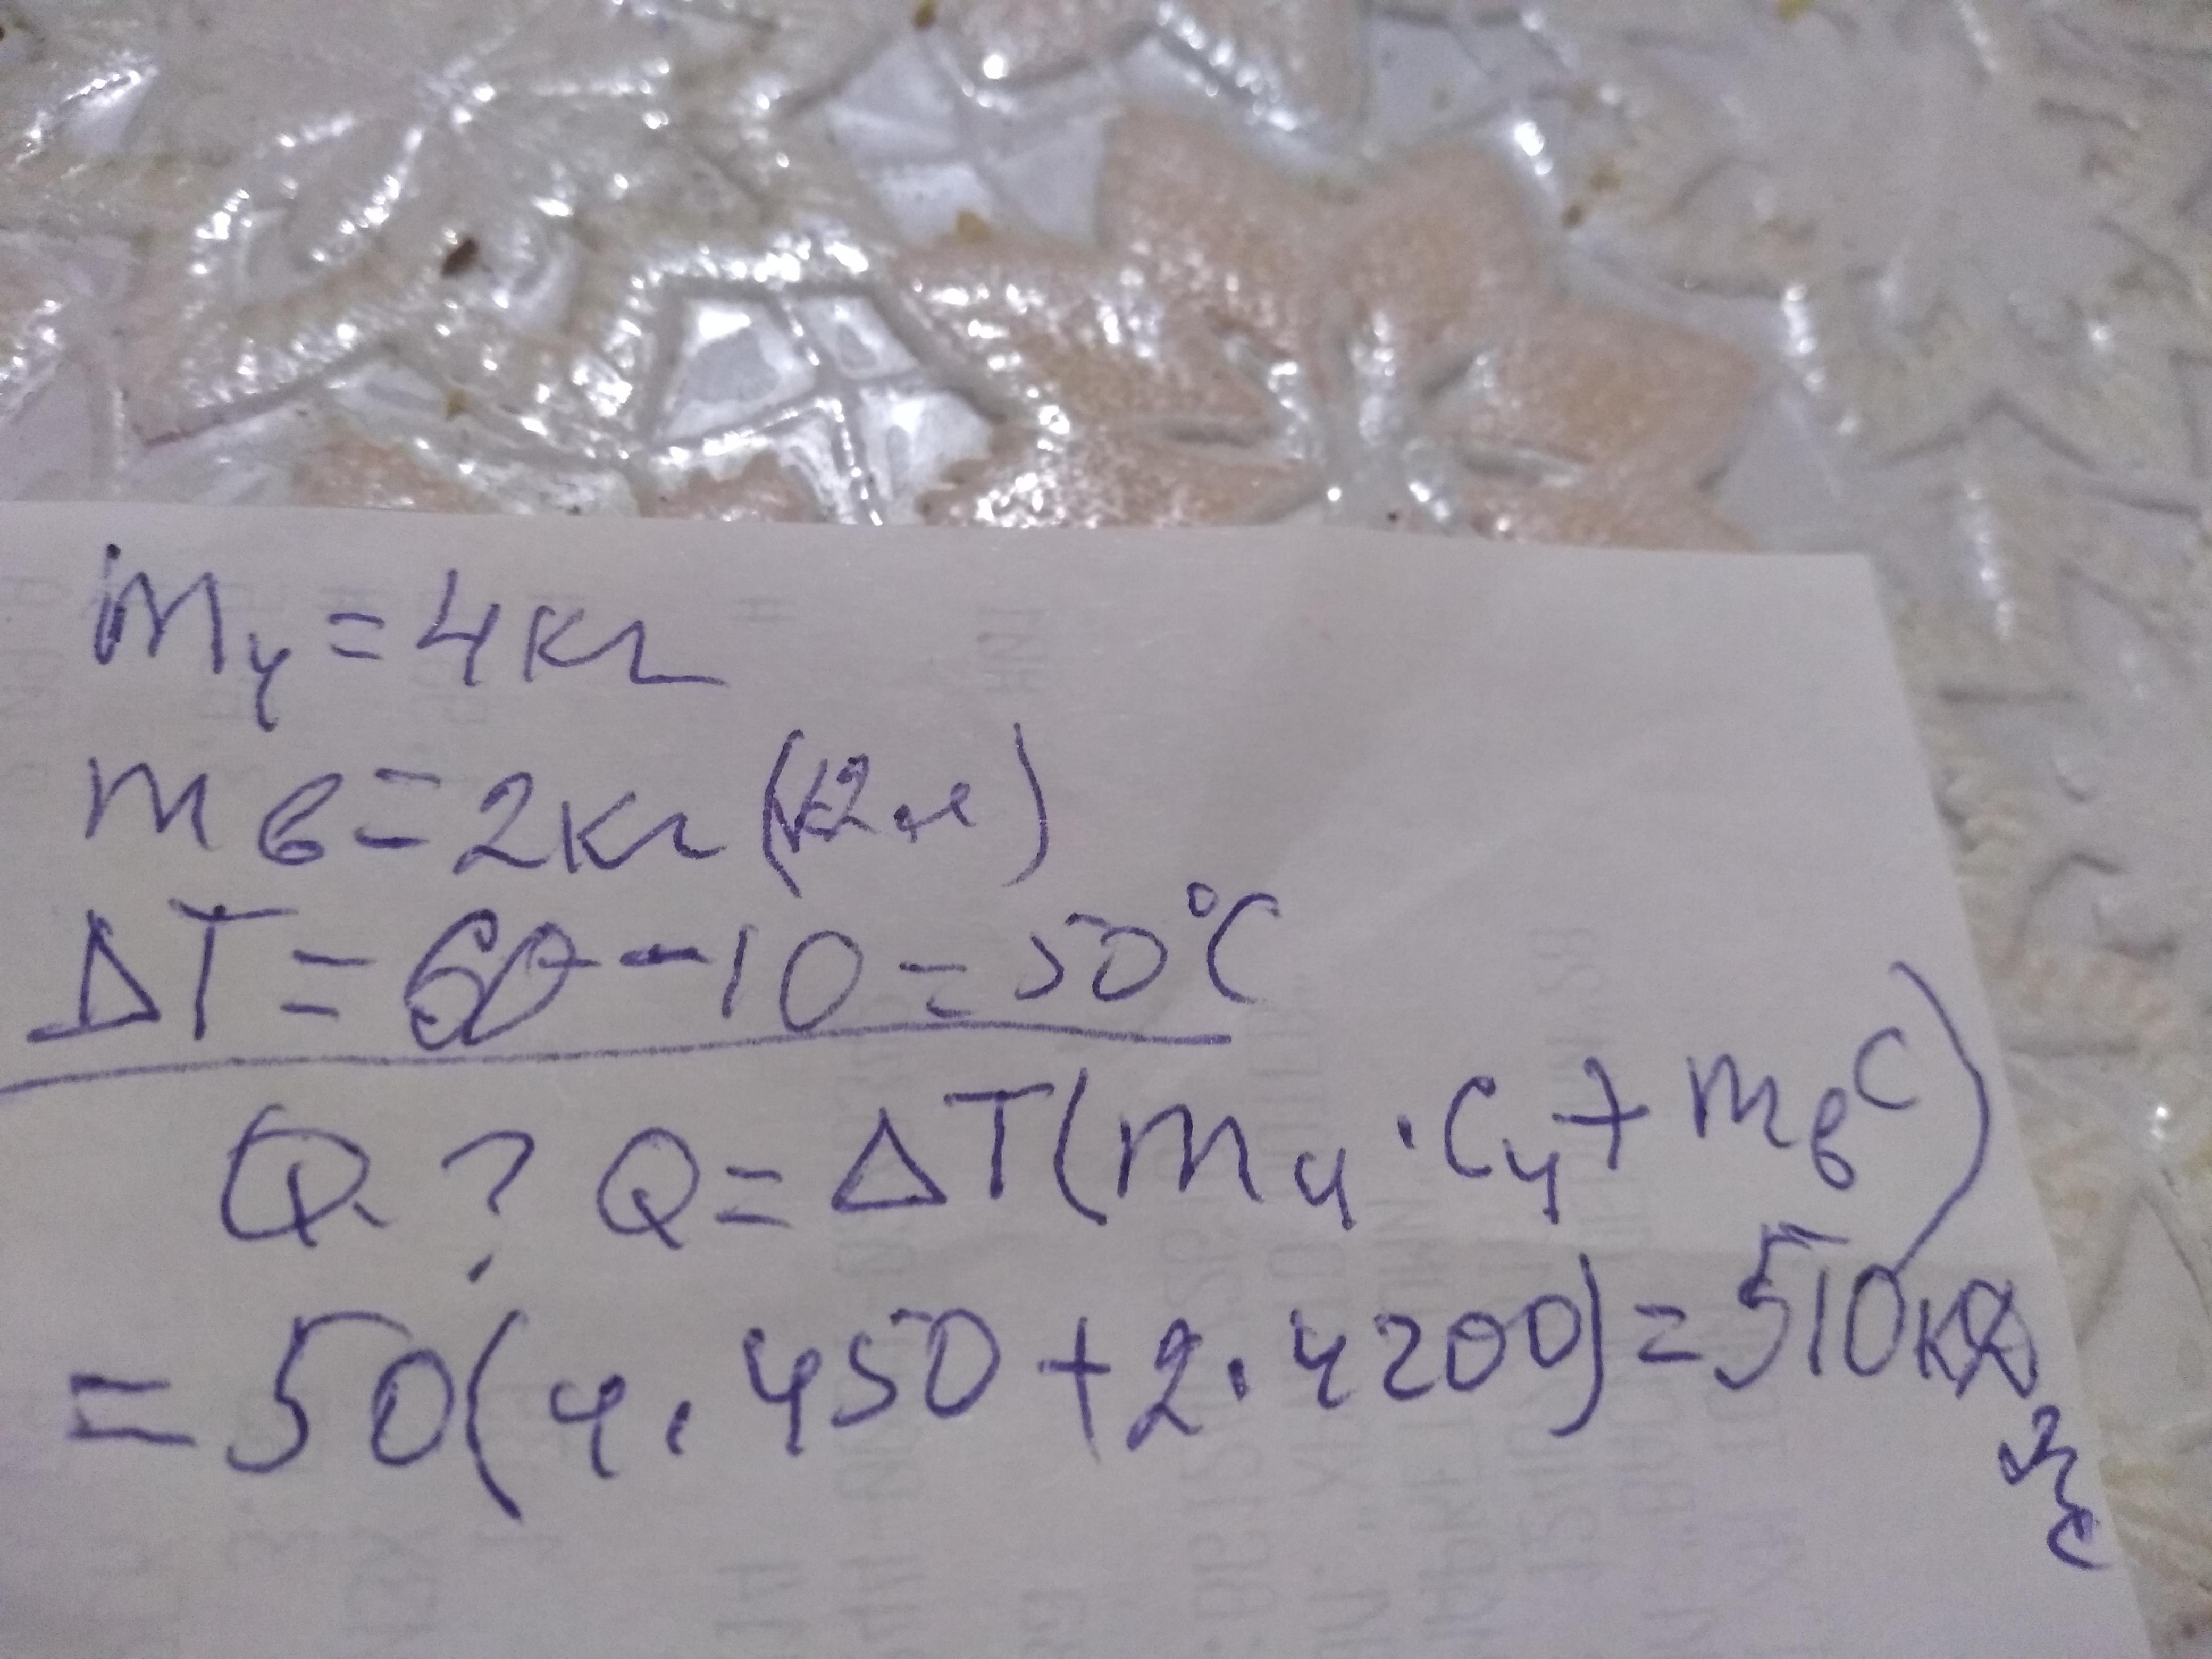 mч = 4 кг
mв = 2 кг (V=2 л)
ΔT = 60 - 10 = 50°C
Q ? Q = ΔT(mч · Cч + mвC)
= 50(4 · 450 + 2 · 4200) = 510 кДж